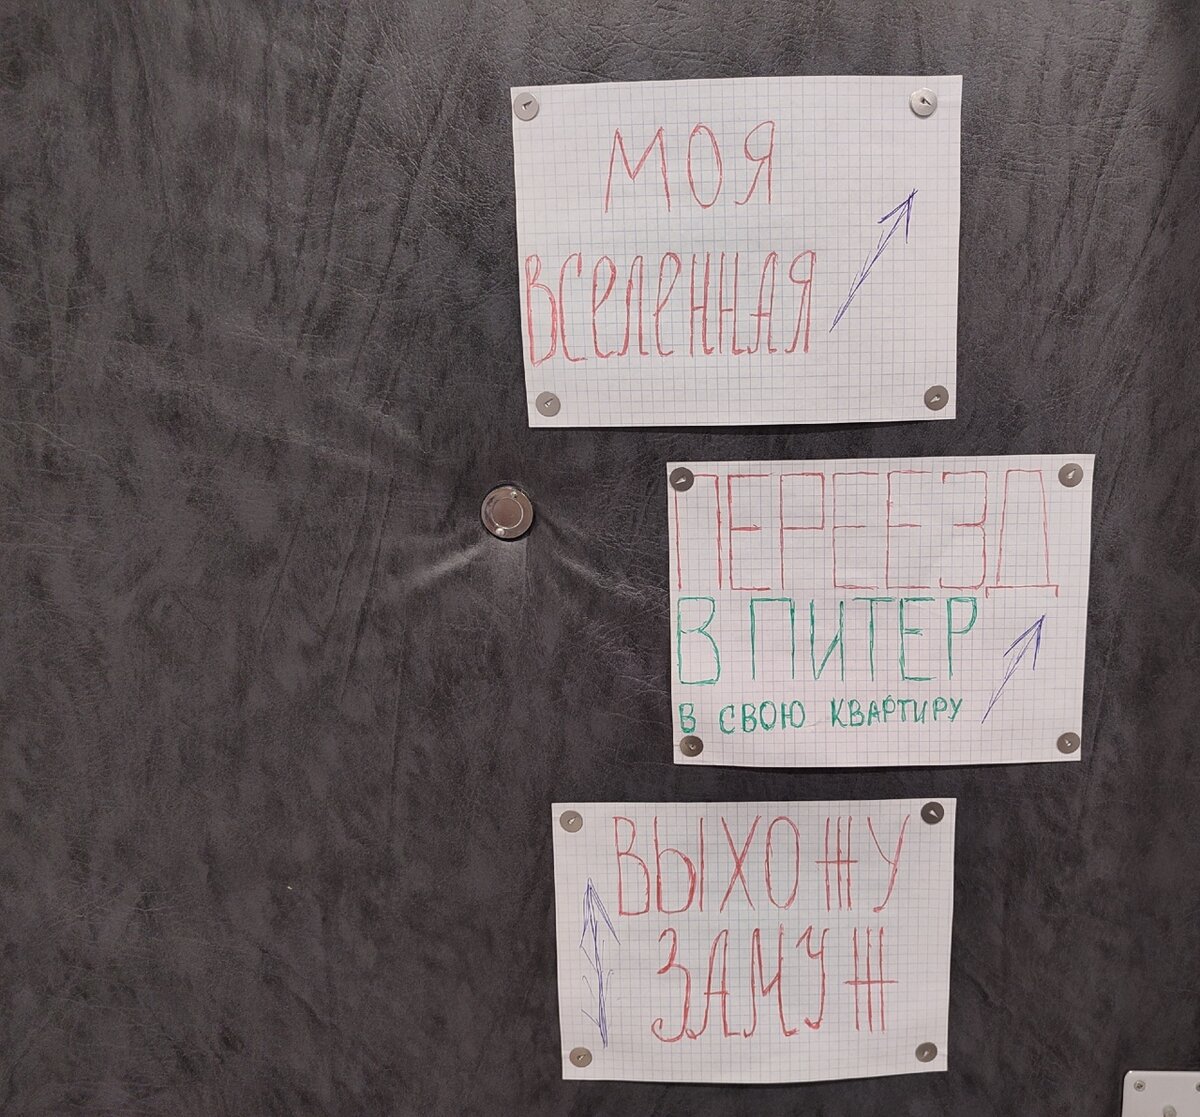 МОЯ
ВСЕЛЕННАЯ
ПЕРЕЕЗД
В ПИТЕР
В СВОЮ КВАРТИРУ
ВЫХОЖУ
ЗАМУЖ